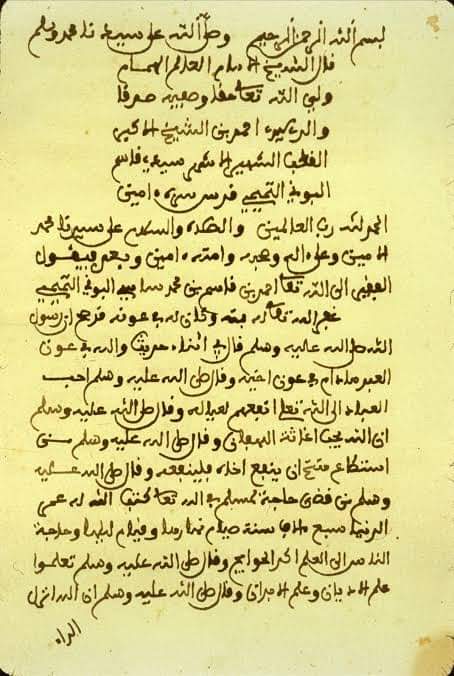 بسم الله الرحمن الرحيم وصلى الله على سيدنا محمد وسلم
قال الشيخ الامام العالم الهمام
ولي الله تعالى حقا وصفيه صدقا
والدي احمد بن الشيخ الاكبر
القطب الشهير الاشهر سيدي قاسم
البوني التميمي قدس سره امين
الحمد لله رب العالمين والصلاة والسلام على سيدنا محمد
الامين وعلى اله وصحبه وامته امين وبعد فيقول
الفقير الى الله تعالى احمد بن قاسم بن محمد ساسي البوني التميمي
غفر الله تعالى له بمنه وكان له بعونه قد صح ان رسول
الله صلى الله عليه وسلم قال في اثناء حديث والله في عون
العبد ما دام في عون اخيه وقال صلى الله عليه وسلم احب
العباد الى الله تعلى انفعهم لعياله وقال صلى الله عليه وسلم
ان الله يحب اغاثة اللهفان وقال صلى الله عليه وسلم من
استطاع منكم ان ينفع اخاه فلينفعه وقال صلى الله عليه
وسلم من قضى حاجة لمسلم في الله تعالى كتب الله له عمر
الدنيا سبع الاف سنة صيام نهارها وقيام ليلها وحاجة
الناس الى العلم اكبر الحوايج وقال صلى الله عليه وسلم تعلموا
علم الاديان وعلم الابدان وقال صلى الله عليه وسلم ان الله انزل
الداء